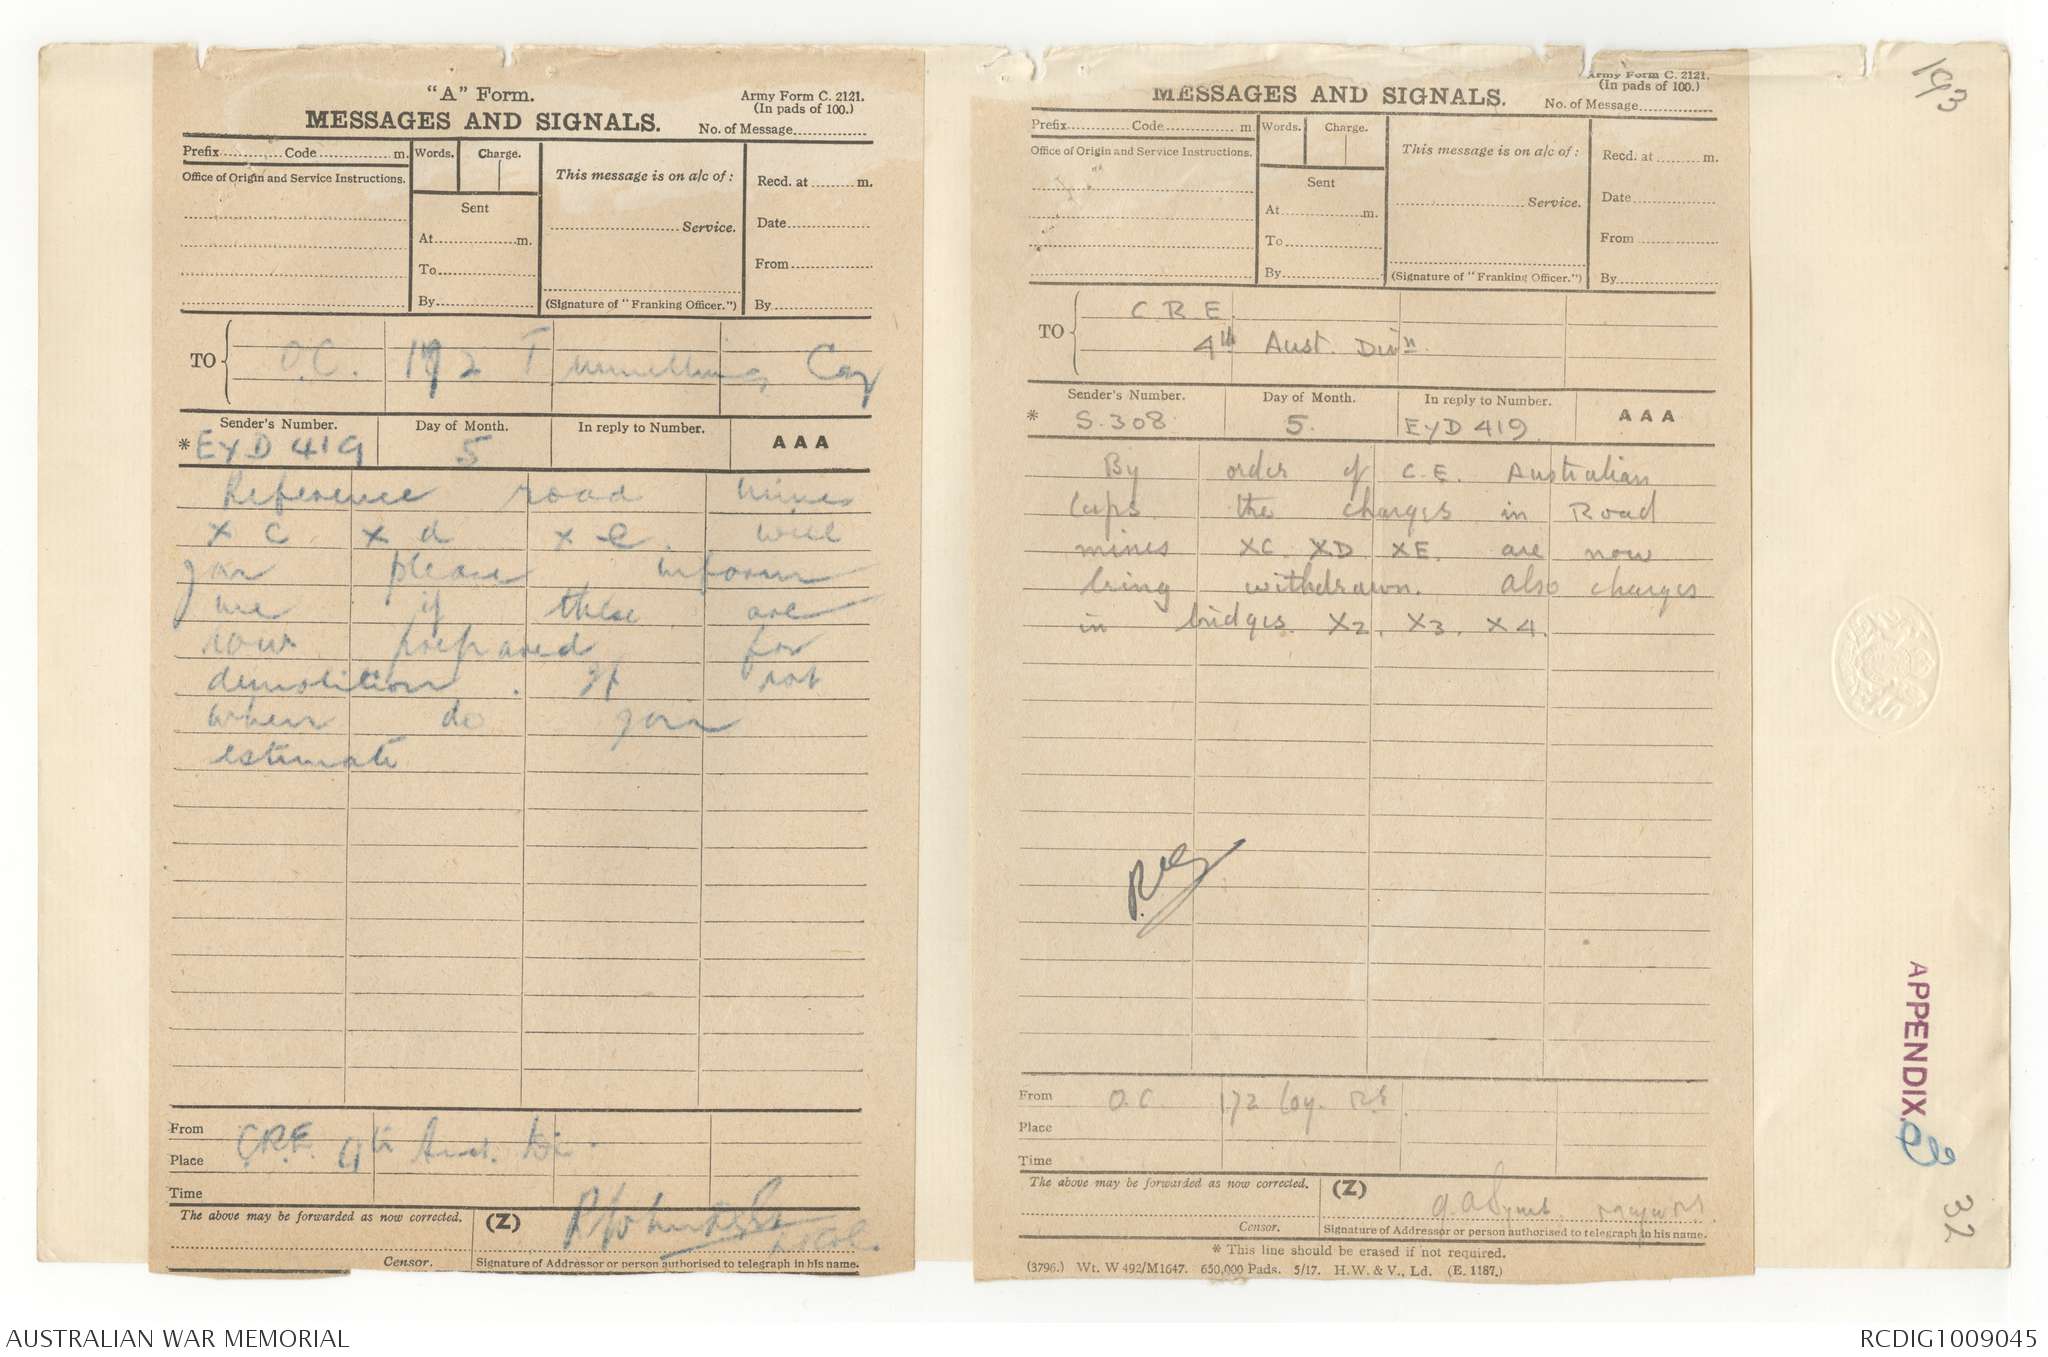 "A" Form.
Army Form C. 2121.
(In pads of 100.)
MESSAGES AND SIGNALS.
No. of Message
Prefix Code m.
Words.
Charge.
This message is on a/c of :
Recd. at m.
Office of Origin and Service Instructions.
Sent
At m.
Service.
Date
To
From
By
(Signature of "Franking Officer.")
By
TO
O.C. 172 Tunnelling Coy
Sender's Number.
Day of Month.
In reply to Number.
AAA
* EYD 419
5
Reference road mines
XC Xd Xe. will
you please inform
me if these are
now prepared for
demolition. If not
when do you
estimate
From
CRE 4th Aust. Div.
Place
Time
The above may be forwarded as now corrected.
(Z)
Censor.
Signature of Addressor or person authorised to telegraph in his name.
Army Form C. 2121.
(In pads of 100.)
MESSAGES AND SIGNALS.
No. of Message
Prefix Code m.
Words.
Charge.
This message is on a/c of :
Recd. at m.
Office of Origin and Service Instructions.
Sent
At m.
Service.
Date
To
From
By
(Signature of "Franking Officer.")
By
TO
C R E.
4th Aust. Divn.
Sender's Number.
Day of Month.
In reply to Number.
AAA
* S.308
5.
EYD 419.
By order of C.E. Australian
Corps. the charges in Road
mines XC. XD XE. are now
being withdrawn. also charges
in bridges. X2. X3. X4.
From
O.C. 172 Coy. R.E.
Place
Time
The above may be forwarded as now corrected.
(Z)
Censor.
Signature of Addressor or person authorised to telegraph in his name.
* This line should be erased if not required.
(3796.) Wt. W 492/M1647. 650,000 Pads. 5/17. H.W. & V., Ld. (E. 1187.)
193
APPENDIX
32
AUSTRALIAN WAR MEMORIAL
RCDIG1009045